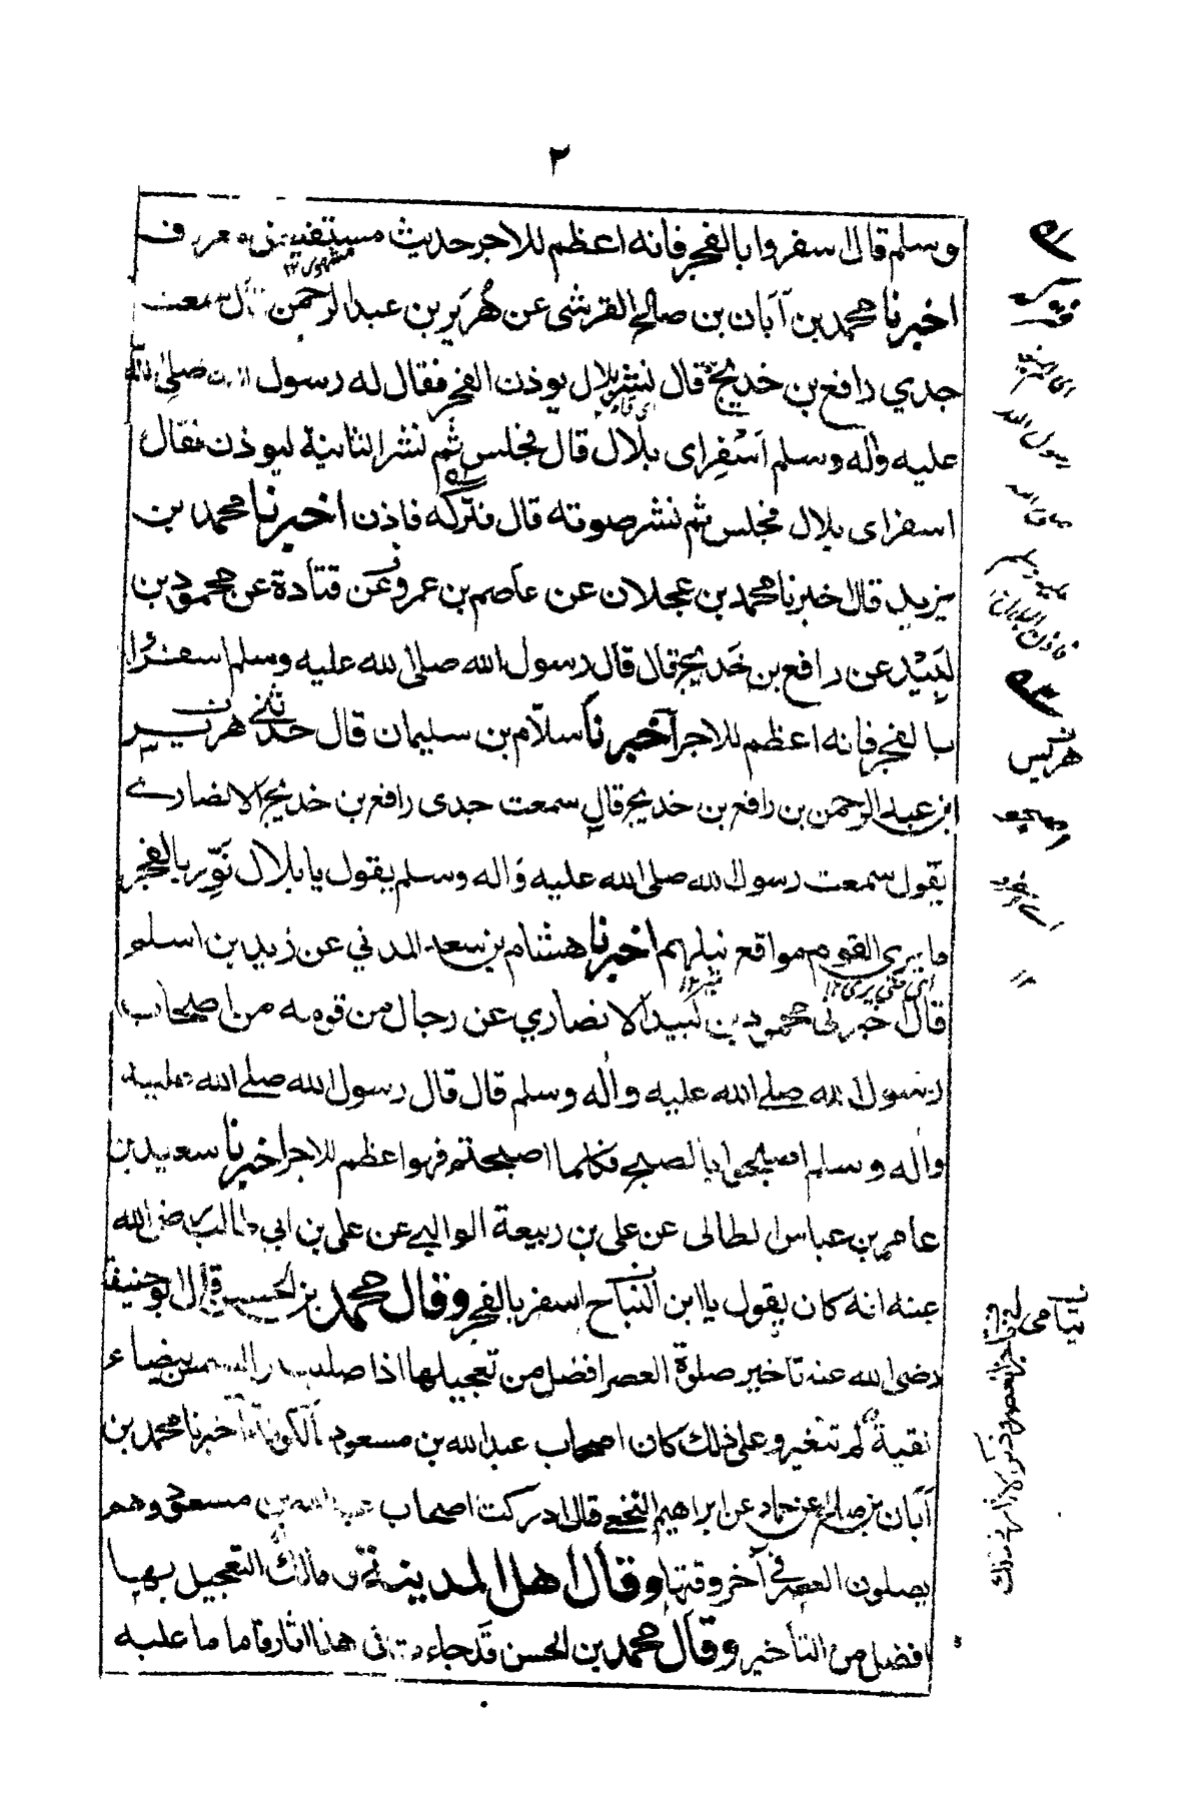 ٢
وسلم قال اسفروا بالفجر فانه اعظم للاجر حديث مستفيض معروف
مشهور ١٢
اخبرنا محمد بن آبان بن صالح القرشى عن هُرَير بن عبد الرحمن قال سمعت
جدي رافع بن خديج قال نشر بلال يوذن الفجر فقال له رسول الله صلى الله
عليه واله وسلم اَسْفِر اى بلال قال فجلس ثم نشر الثانية ليوذن فقال
اسفر اى بلال فجلس ثم نشر صوته قال فتركه فاذن اخبرنا محمد بن
يزيد قال اخبرنا محمد بن عجلان عن عاصم بن عمرو عن قتادة عن محمود بن
لَبِيْد عن رافع بن خديج قال قال رسول الله صلى الله عليه وسلم اسفروا
بالفجر فانه اعظم للاجر اخبرنا سلّام بن سليمان قال حدثني هرير
ابن عبد الرحمن بن رافع بن خديج قال سمعت جدى رافع بن خديج الانصارے
يقول سمعت رسول الله صلى الله عليه واله وسلم يقول يا بلال نَوِّر بالفجر
ما يرى القوم مواقع نبلهم اخبرنا هشام بن سعد المدني عن زيد بن اسلم
قال اخبرنى محمود بن لبيد الانصاري عن رجال من قومه من اصحاب
رسول الله صلے الله عليه واله وسلم قال قال رسول الله صلے الله عليه
واله وسلم اصبحوا بالصبح فكلما اصبحتم فهو اعظم للاجر اخبرنا سعيد بن
عامر بن عباس الطالى عن على بن ربيعة الوالبے عن على بن ابي طالب رضى الله
عنه انه كان يقول يا ابن النباح اسفر بالفجر وقال محمد بن الحسن قال ابو حنيفة
رضى الله عنه تاخير صلوة العصر افضل من تعجيلها اذا صليت والشمس بيضاء
نقية لم تتغير وعلى ذلك كان اصحاب عبد الله بن مسعود بالكوفة اخبرنا محمد بن
آبان بن صالح عن حماد عن ابراهيم النخعے قال ادركت اصحاب عبد الله بن مسعود وهم
يصلون العصر في آخر وقتها وقال اهل المدينة مالك التعجيل بها
افضل من التأخير وقال محمد بن الحسن قد جاءت فى هذا اثار فاما ما عليه
هريس